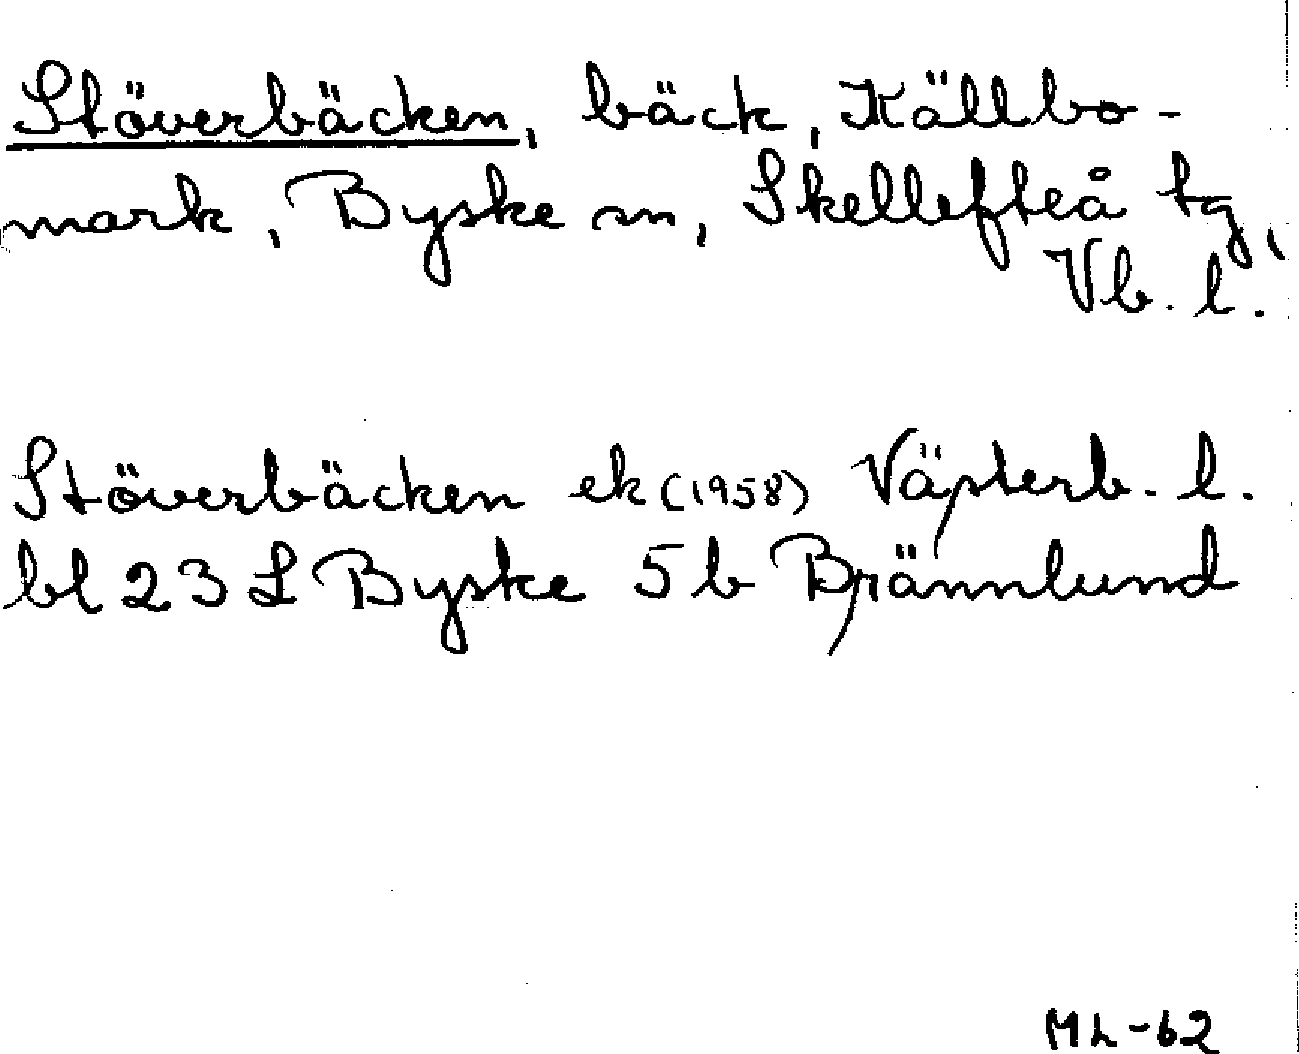 Stöverbäcken, bäck, Källbo-
mark, Byske sn, Skellefteå tg,
Vb. l.
Stöverbäcken ek (1958) Västerb. l.
bl 23 L Byske 5 b Brännlund
ML-62